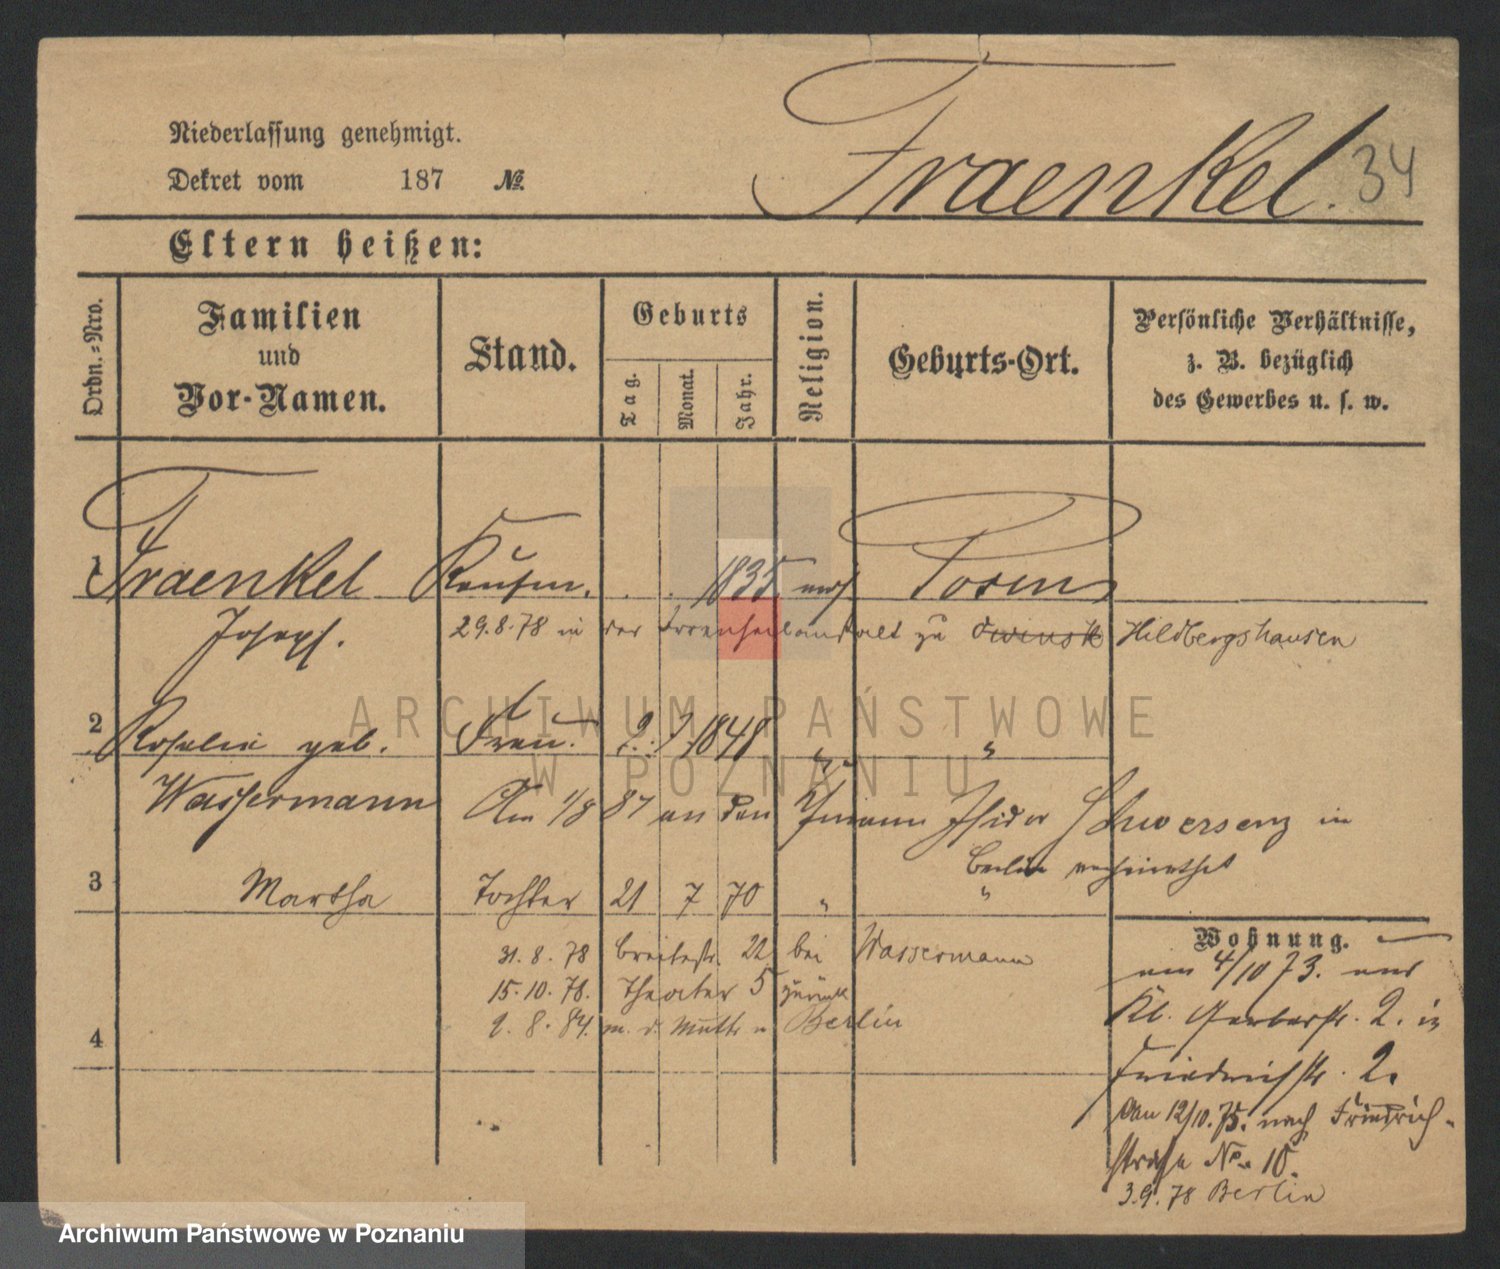 Fraenkel. 34
Niederlassung genehmigt.
Dekret vom 187 №.
Eltern heißen:
Ordn.-Nro.
Familien
und
Vor-Namen.
Stand.
Geburts
Tag.
Monat.
Jahr.
Religion.
Geburts-Ort.
Persönliche Verhältnisse,
z. B. bezüglich
des Gewerbes u. s. w.
1 Fraenkel Kaufm. 1835 mos Posen
Joseph. 29.8.78 in der Irrenheilanstalt zu Owinsk Hildburgshausen
2 Rosalie geb. Frau. 2. 7. 1848 " "
Wassermann Am 1/8 87 an den Kfmann Isidor Schwersenz in
Berlin verheirathet
3 Martha Tochter 21 7 70 " "
Wohnung.
31. 8. 78 Breitestr. 22 bei Wassermann
15. 10. 78. Theater 5 zurück
2. 8. 84. m. d. Mutt. n Berlin
4
am 4/10 73. aus
Kl. Gerberstr. 2. in
Friedrichstr. 2.
Am 12/10. 75. nach Friedrich-
straße No. 10.
3.9.78 Berlin
ARCHIWUM PAŃSTWOWE
W POZNANIU
Archiwum Państwowe w Poznaniu